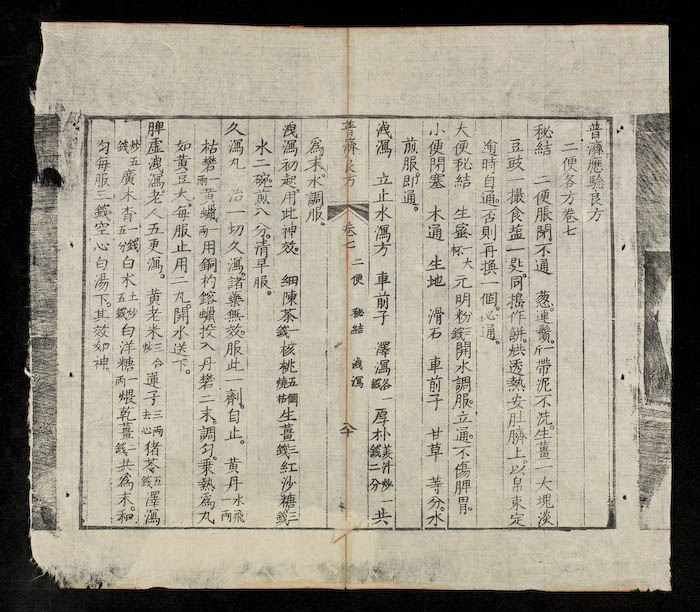 普濟應驗良方
二便各方卷七
秘結　二便脹閉不通　葱連鬚一斤帶泥不洗。生薑一大塊淡
豆豉一撮食塩一匙。同搗作餅。烘透熱安肚臍上。以帛束定
逾時自通。否則再換一個。必通。
大便秘結　生蜜一大杯　元明粉三錢開水調服。立通。不傷脾胃。
小便閉塞　木通　生地　滑石　車前子　甘草　等分。水
煎服即通。
洩瀉　立止水瀉方　車前子　澤瀉各一錢厚朴姜汁炒一錢二分共
普濟良方　卷七　二便　秘結　洩瀉　八十
為末。水調服。
洩瀉初起。用此神效。　細陳茶一錢核桃五個燒枯生薑三錢紅沙糖三錢
水二碗煎八分。清早服。
久瀉丸　治一切久瀉。諸藥無效。服此一劑。自止。　黃丹水飛一兩
枯礬一兩黃蠟一兩用銅杓鎔蠟投入丹礬二末。調勻。乘熱為丸
如黃豆大。每服止用二丸。開水送下。
脾虛洩瀉老人五更瀉。　黃老米炒三合蓮子三兩去心猪苓五錢澤瀉
炒五錢廣木香一錢五分白朮土炒五錢白洋糖一兩煨乾薑二錢共為末。和
勻每服三錢空心白湯下。其效如神。